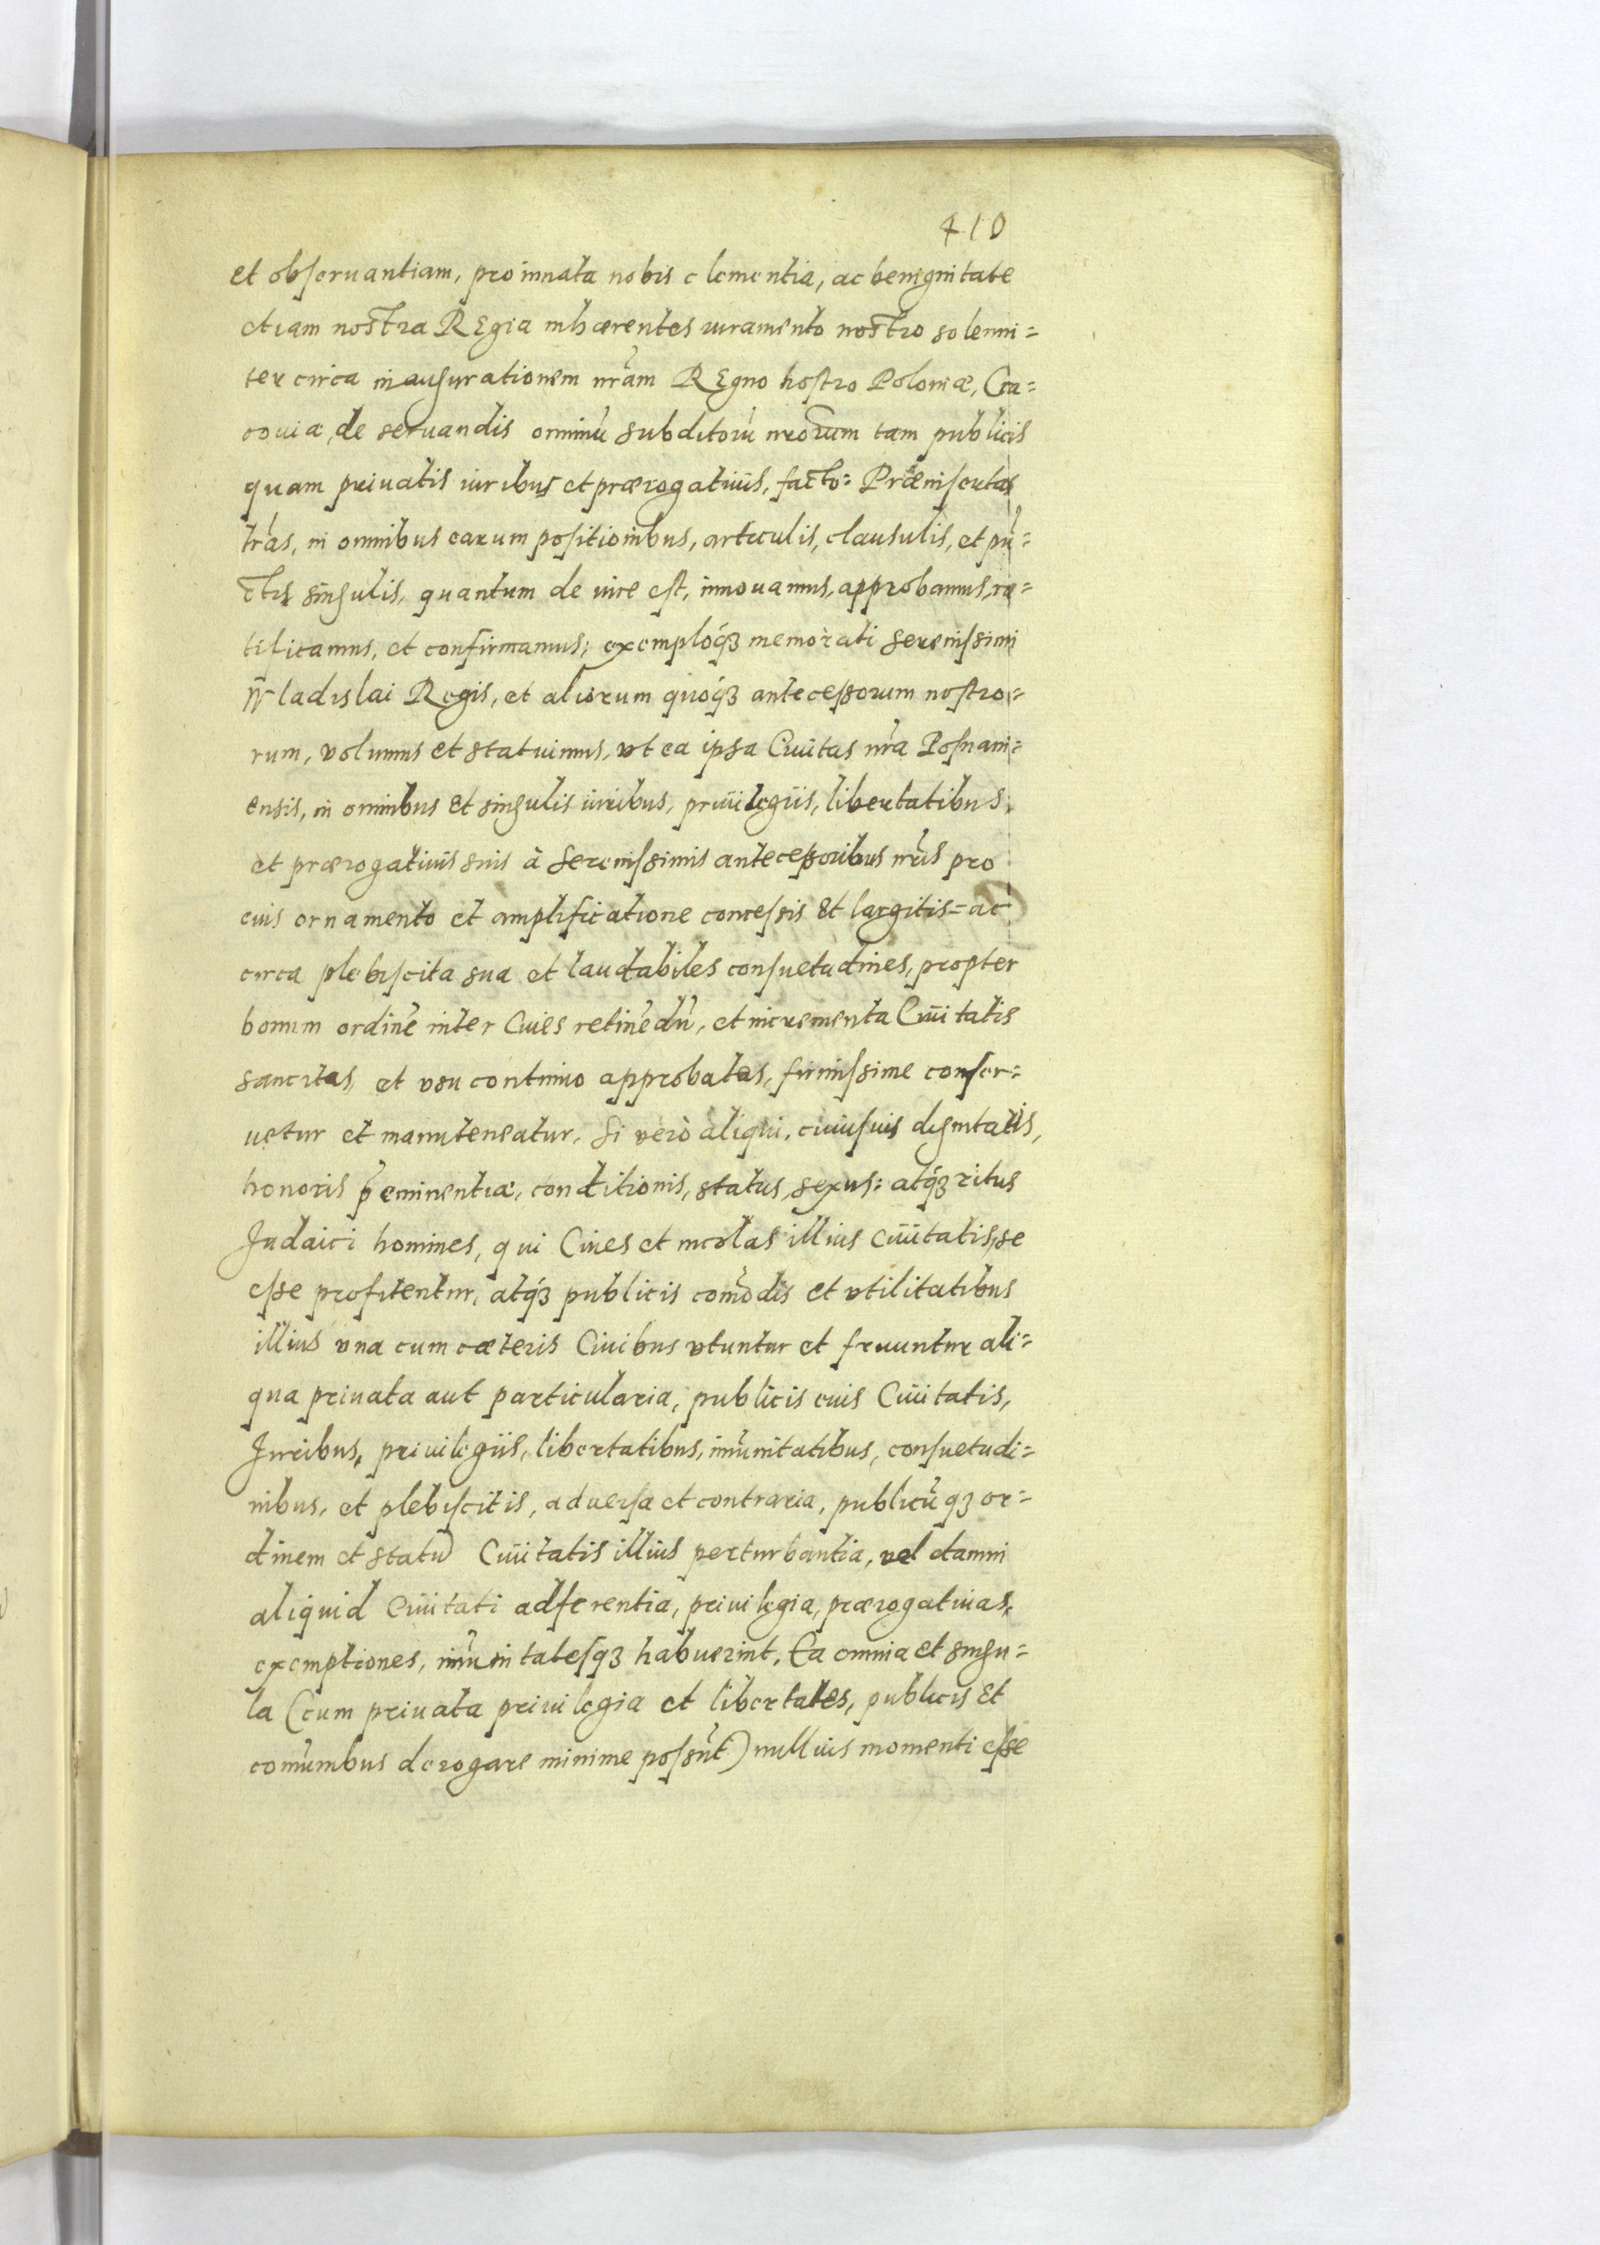 410
et obseruantiam, pro innata nobis clementia, ac benignitate
etiam nostra REgia inhærentes iuramento nostro solenni=
ter circa inaugurationem nr̃am REgno nostro Poloniæ, Cra=
couiæ, de seruandis omniũ subditorũ nrõrum tam publicis
quam priuatis iuribus et prærogatiuis, facto: Præinsertas
lr̃as, in omnibus earum positionibus, articulis, clausulis, et pũ=
ctis singulis, quantum de iure est, innouamus, approbamus, ra=
tificamus, et confirmamus; exemploq́ʒ memorati Serenissimi
Wladislai Regis, et aliorum quoq́ʒ antecessorum nostro=
rum, volumus et statuimus, vt ea ipsa Ciuitas nr̃a Posnani=
ensis, in omnibus et singulis iuribus, priuilegiis, libertatibus,
et prærogatiuis suis à Serenissimis antecessoribus nr̃is pro
eius ornamento et amplificatione concessis Et largitis= ac
circa plebiscita sua et laudabiles consuetudines, propter
bonum ordinẽ inter Ciues retinẽdũ, et incrementa Ciuitatis
sancitas et vsu continuo approbatas, firmissime conser=
uetur et manuteneatur. Si verò aliqui, cuiusuis dignitatis,
honoris p̃eminentiæ, conditionis, status, sexus: atq́ʒ ritus
Judaici homines, qui Ciues et incolas illius Ciuitatis, se
esse profitentur, atq́ʒ publicis com̃odis et vtilitatibus
illius vna cum cæteris Ciuibus vtuntur et fruuntur ali=
qua priuata aut particularia, publicis eius Ciuitatis,
Juribus, priuilegiis, libertatibus, im̃unitatibus, consuetudi=
nibus, et plebiscitis, aduersa et contraria, publicũqʒ or=
dinem et statũ Ciuitatis illius perturbantia, vel damni
aliquid Ciuitati adferentia, priuilegia, prærogatiuas,
exemptiones, im̃unitatesqʒ habuerint, Ea omnia et singu=
la (cum priuata priuilegia et libertates, publicis Et
com̃unibus derogare minime possũt) nullius momenti esse